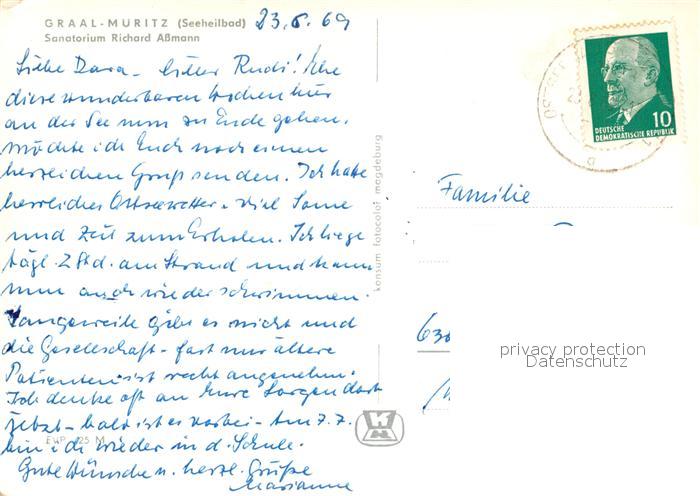 GRAAL-MÜRITZ (Seeheilbad)
Sanatorium Richard Aßmann
23.6.69
Liebe Dora - lieber Rudi! Ehe
diese wunderbaren Wochen hier
an der See nun zu Ende gehen,
möchte ich Euch noch einen
herzlichen Gruß senden. Ich habe
herrliches Ostseewetter, viel Sonne
und Zeit zum Erholen. Ich liege
tägl. 2 Std. am Strand und kann
nun auch wieder schwimmen.
Langeweile gibt es nicht und
die Gesellschaft - fast nur ältere
Patienten ist recht angenehm.
Ich denke oft an Eure Sorgen dort
jetzt - bald ist es vorbei - Am 7.7.
bin ich wieder in d. Schule.
Gute Wünsche u. herzl. Grüße
Marianne
EVP 25 M
konsum fotocolor magdeburg
DEUTSCHE
DEMOKRATISCHE REPUBLIK
10
Familie
630
privacy protection
Datenschutz